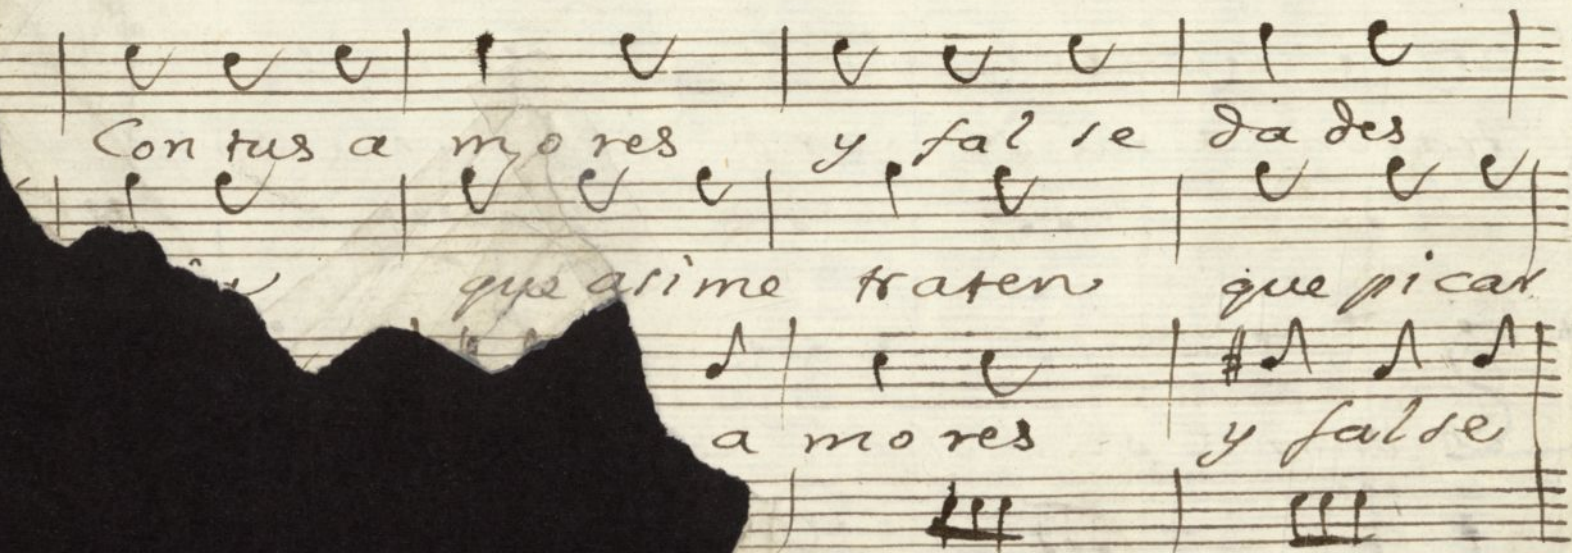 Con tus a mo res y fal se da des
que asi me traten que picar
a mo res y false